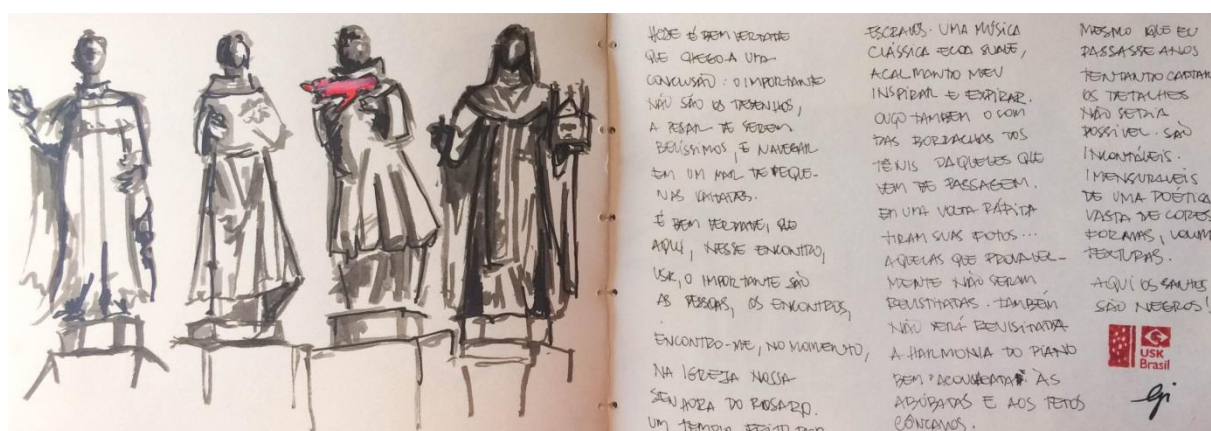 HOJE É BEM VERDADE
QUE CHEGO A UMA
CONCLUSÃO: O IMPORTANTE
NÃO SÃO OS DESENHOS,
A PESAR DE SEREM
BELÍSSIMOS, E NAVEGAR
EM UM MAR DE PEQUE-
NAS
É BEM VERDADE, QUE
AQUI, NESSE ENCONTRO,
USK, O IMPORTANTE SÃO
AS PESSOAS, OS ENCONTROS,
.
ENCONTRO-ME, NO MOMENTO,
NA IGREJA NOSSA
SENHORA DO ROSARIO.
UM TEMPLO FEITO POR
ESCRAVOS. UMA MÚSICA
CLÁSSICA ECOA SUAVE,
ACALMANDO MEU
INSPIRAR E EXPIRAR.
OUÇO TAMBEM O SOM
DAS BORRACHAS DOS
TÊNIS DAQUELES QUE
VEM DE PASSAGEM.
EM UMA VOLTA RÁPIDA
TIRAM SUAS FOTOS...
AQUELAS QUE PROVAVEL-
MENTE NÃO SERAM
REVISITADAS. TAMBÉM
NÃO SERÁ REVISITADA
A HARMONIA DO PIANO
BEM ACONCHEADA ÀS
ABÓBADAS E AOS TETOS
CÔNCAVOS.
MESMO QUE EU
PASSASSE ANOS
TENTANDO CAPTAR
OS DETALHES
NÃO SERIA
POSSÍVEL. SÃO
INCONTÁVEIS.
IMENSURAVEIS
DE UMA POÉTICA
VASTA DE CORES
FORMAS, VOLUM
TEXTURAS.
AQUI OS SANTOS
SÃO NEGROS!
USK
Brasil